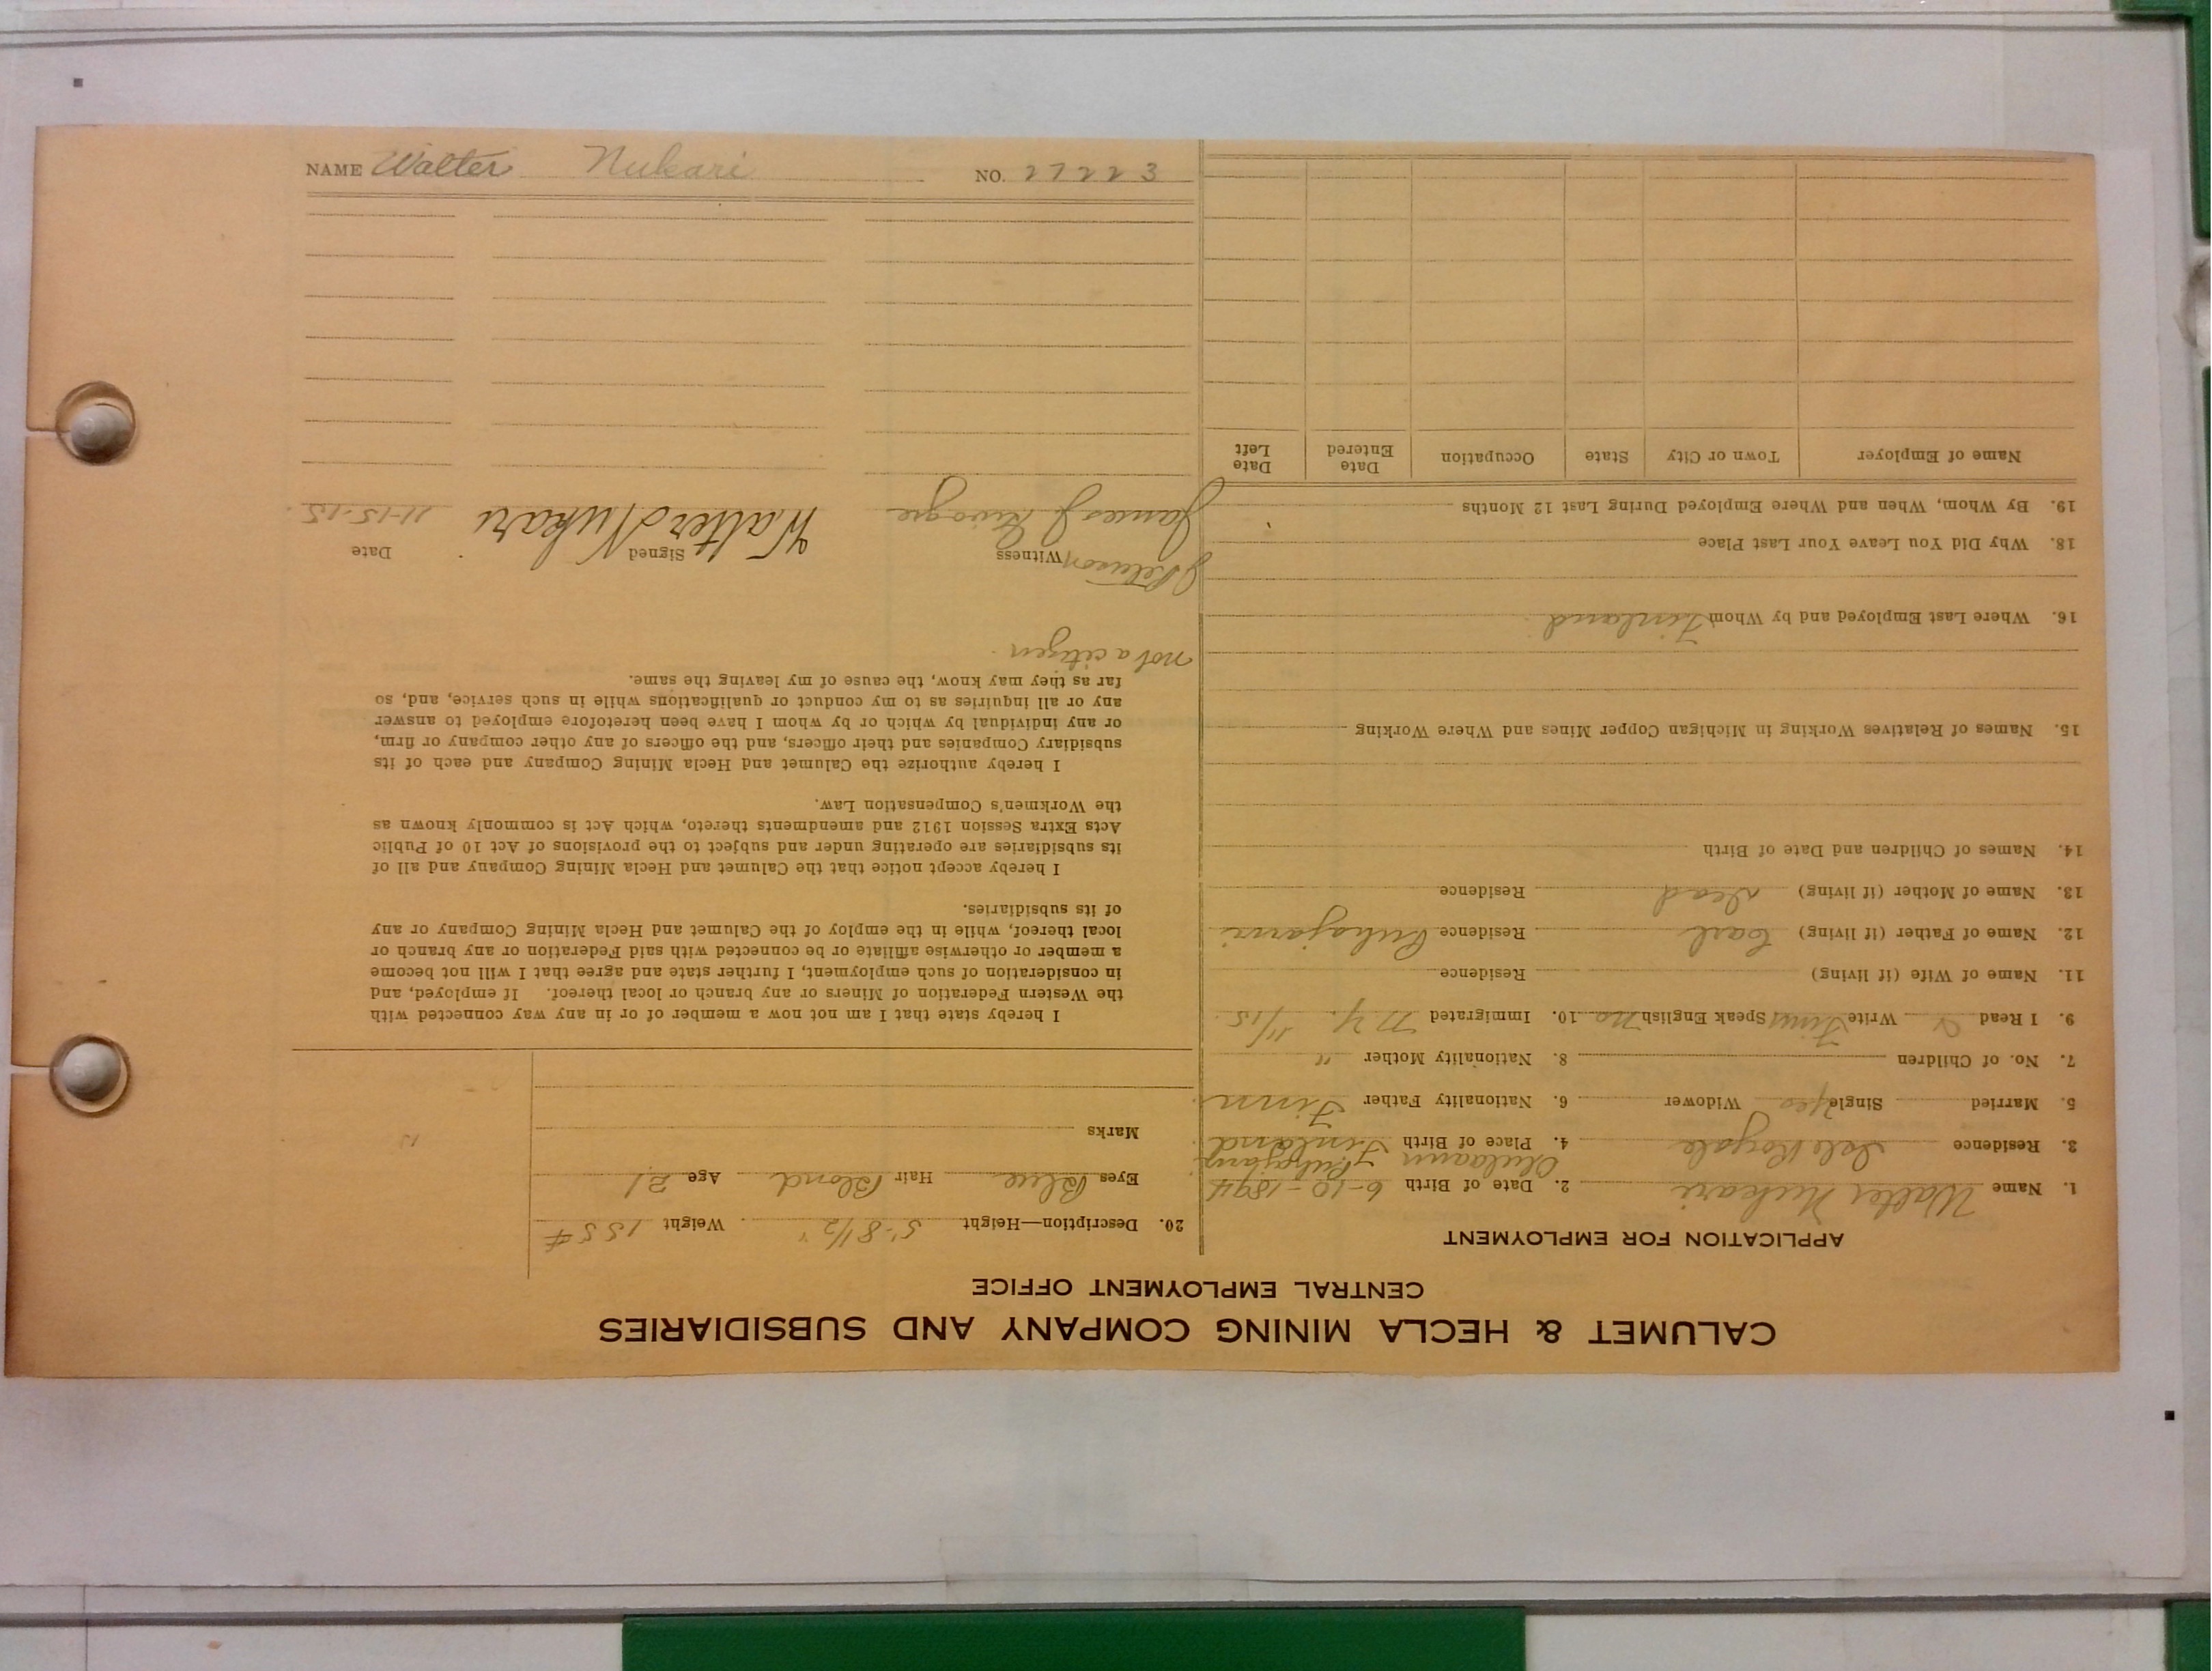 CALUMET & HECLA MINING COMPANY AND SUBSIDIARIES
CENTRAL EMPLOYMENT OFFICE
APPLICATION FOR EMPLOYMENT
1. Name Walter Nukari 2. Date of Birth 6-10-1894
3. Residence Isle Royale 4. Place of Birth Finland
5. Married Single Yes Widower 6. Nationality Father Finn
7. No. of Children 8. Nationality Mother "
9. I Read Write Finn Speak English no 10. Immigrated N.Y. 11/15
11. Name of Wife (if living) Residence
12. Name of Father (if living) Carl Residence
13. Name of Mother (if living) Dead Residence
14. Names of Children and Date of Birth
15. Names of Relatives Working in Michigan Copper Mines and Where Working
16. Where Last Employed and by Whom Finland
18. Why Did You Leave Your Last Place
19. By Whom, When and Where Employed During Last 12 Months
Name of Employer Town or City State Occupation Date Entered Date Left
20. Description—Height 5'-8 1/2" Weight 155 #
Eyes Blue Hair Blond Age 21
Marks
I hereby state that I am not now a member of or in any way connected with
the Western Federation of Miners or any branch or local thereof. If employed, and
in consideration of such employment, I further state and agree that I will not become
a member or otherwise affiliate or be connected with said Federation or any branch or
local thereof, while in the employ of the Calumet and Hecla Mining Company or any
of its subsidiaries.
I hereby accept notice that the Calumet and Hecla Mining Company and all of
its subsidiaries are operating under and subject to the provisions of Act 10 of Public
Acts Extra Session 1912 and amendments thereto, which Act is commonly known as
the Workmen's Compensation Law.
I hereby authorize the Calumet and Hecla Mining Company and each of its
subsidiary Companies and their officers, and the officers of any other company or firm,
or any individual by which or by whom I have been heretofore employed to answer
any or all inquiries as to my conduct or qualifications while in such service, and, so
far as they may know, the cause of my leaving the same.
not a citizen
Witness Signed Date
James J. Walter Nukari 11-15-15.
NAME Walter Nukari NO. 27223